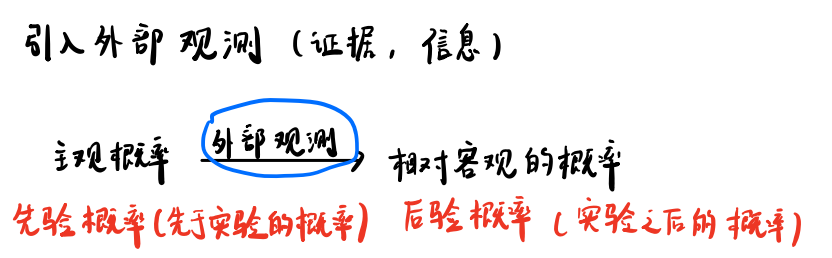 引入外部观测（证据，信息）
主观概率 外部观测 相对客观的概率
先验概率(先于实验的概率) 后验概率（实验之后的概率）